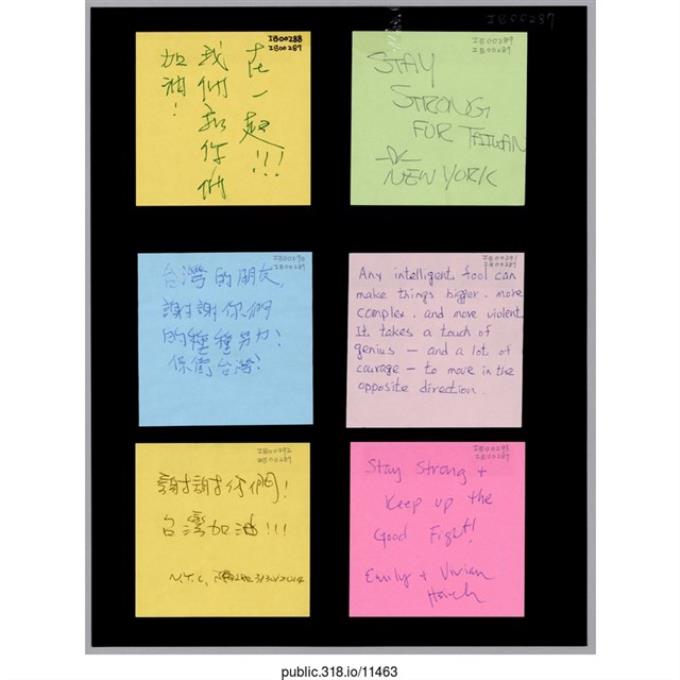 IB00287
IB00288
IB00287
在一起!!!
我們和你們
加油!
IB00289
IB00287
STAY
STRONG
FOR TAIWAN
NEW YORK
IB00290
IB00287
台灣的朋友,
謝謝你們
的種種努力!
保衛台灣!
IB00291
IB00287
Any intelligent fool can
make things bigger, more
complex, and more violent
It takes a touch of
genius — and a lot of
courage — to move in the
opposite direction.
IB00292
IB00287
謝謝你們!
台灣加油!!!
N.Y.C. 3/30/2014
IB00293
IB00287
Stay Strong +
Keep up the
Good Fight!
Emily + Vivian
Hsueh
public.318.io/11463